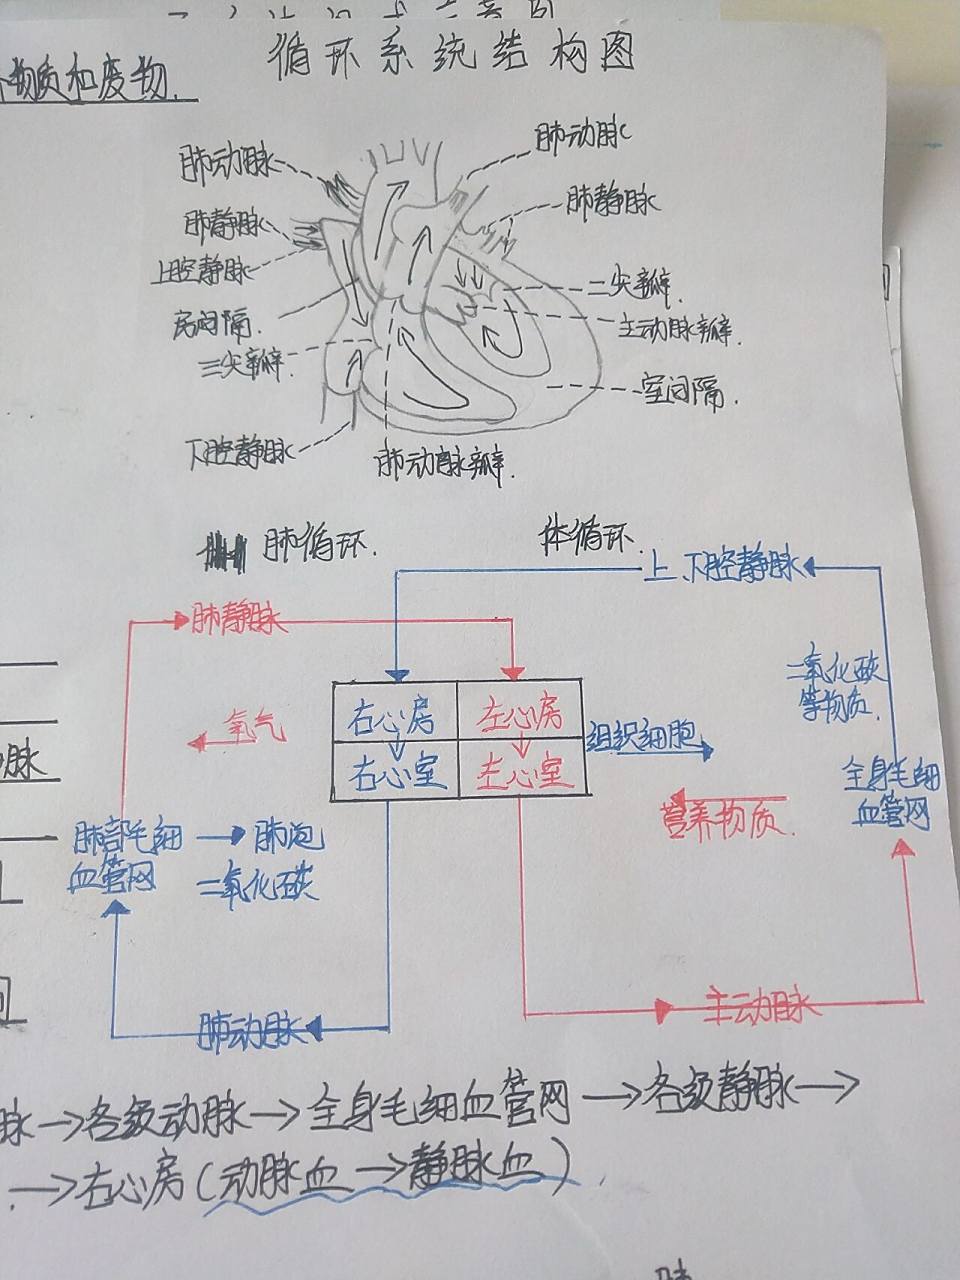 物质和废物.
循环系统结构图
肺动脉
肺动脉
肺静脉
肺静脉
上腔静脉
二尖瓣.
房间隔.
主动脉瓣.
三尖瓣.
室间隔.
下腔静脉
肺动脉瓣.
肺循环.
体循环.
上、下腔静脉
肺静脉
二氧化碳
等物质.
氧气
右心房
左心房
组织细胞
右心室
左心室
全身毛细
血管网
营养物质.
肺部毛细
血管网
→肺泡
二氧化碳
脉
肺动脉
主动脉
脉→各级动脉→全身毛细血管网→各级静脉→
→右心房(动脉血→静脉血).